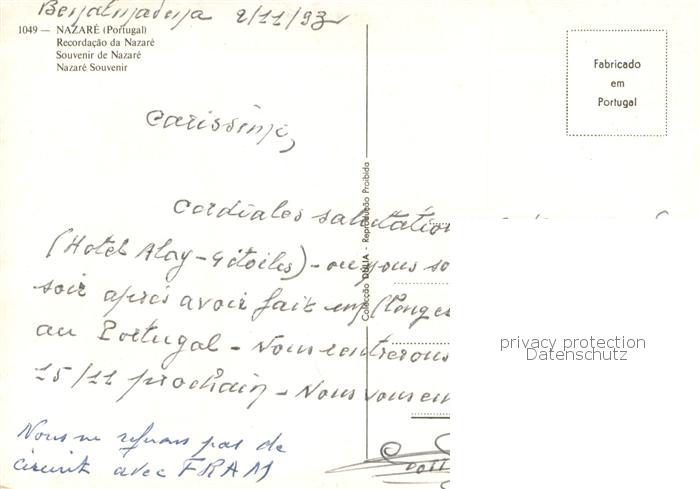 Benalmadena 2/11/93
1049 — NAZARÉ (Portugal)
Recordação da Nazaré
Souvenir de Nazaré
Nazaré Souvenir
Fabricado
em
Portugal
Carissimi,
Colecção DÚLIA - Reprodução Proibida
Cordiales salutation
(Hotel Alay - 4 étoiles) - où nous so
soir après avoir fait un
au Portugal - Nous rentrerons
15/11 prochain - Nous vous em
privacy protection
Datenschutz
Nous ne refusons pas de
circuit avec FRAM